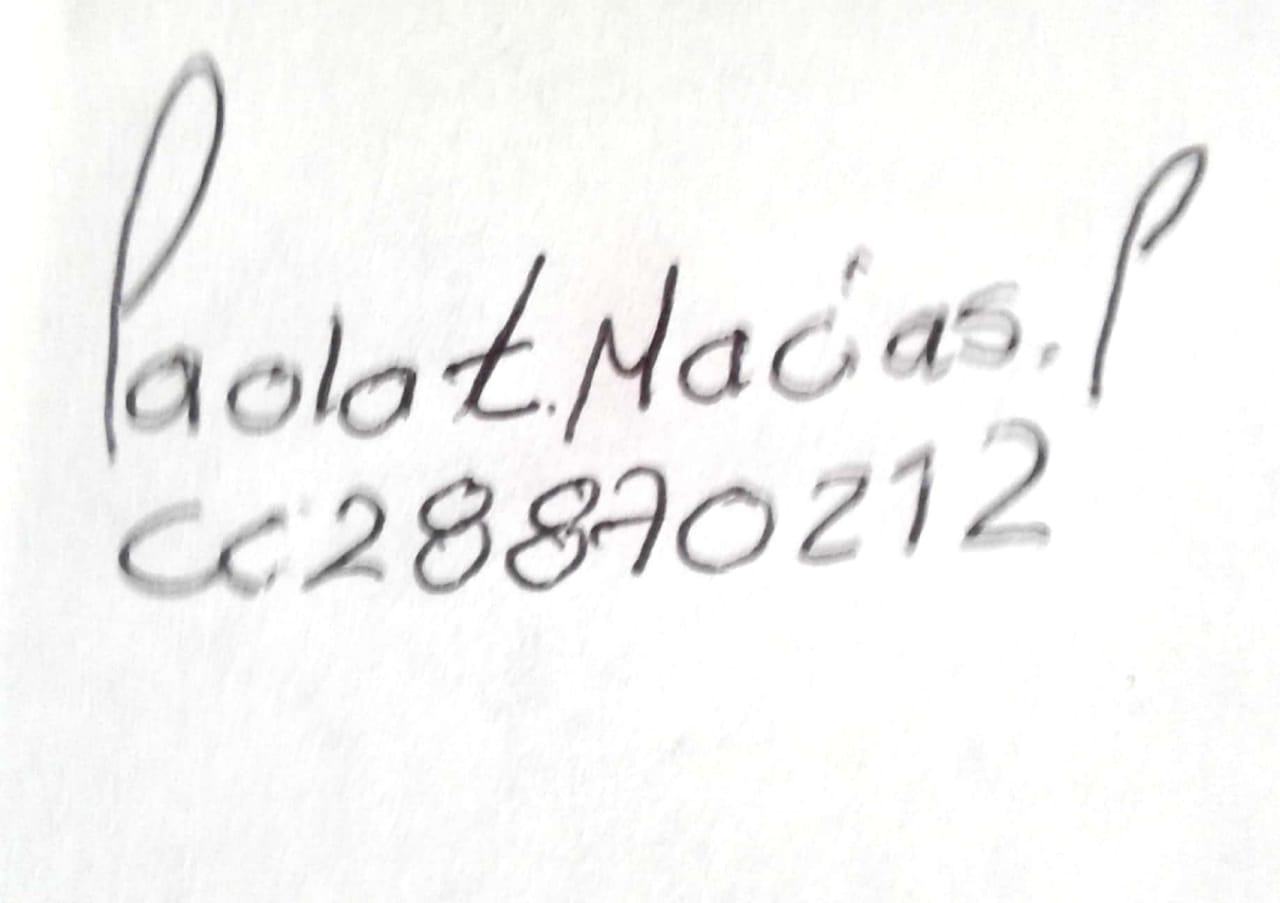 Paola t. Macías. P
CC28870212